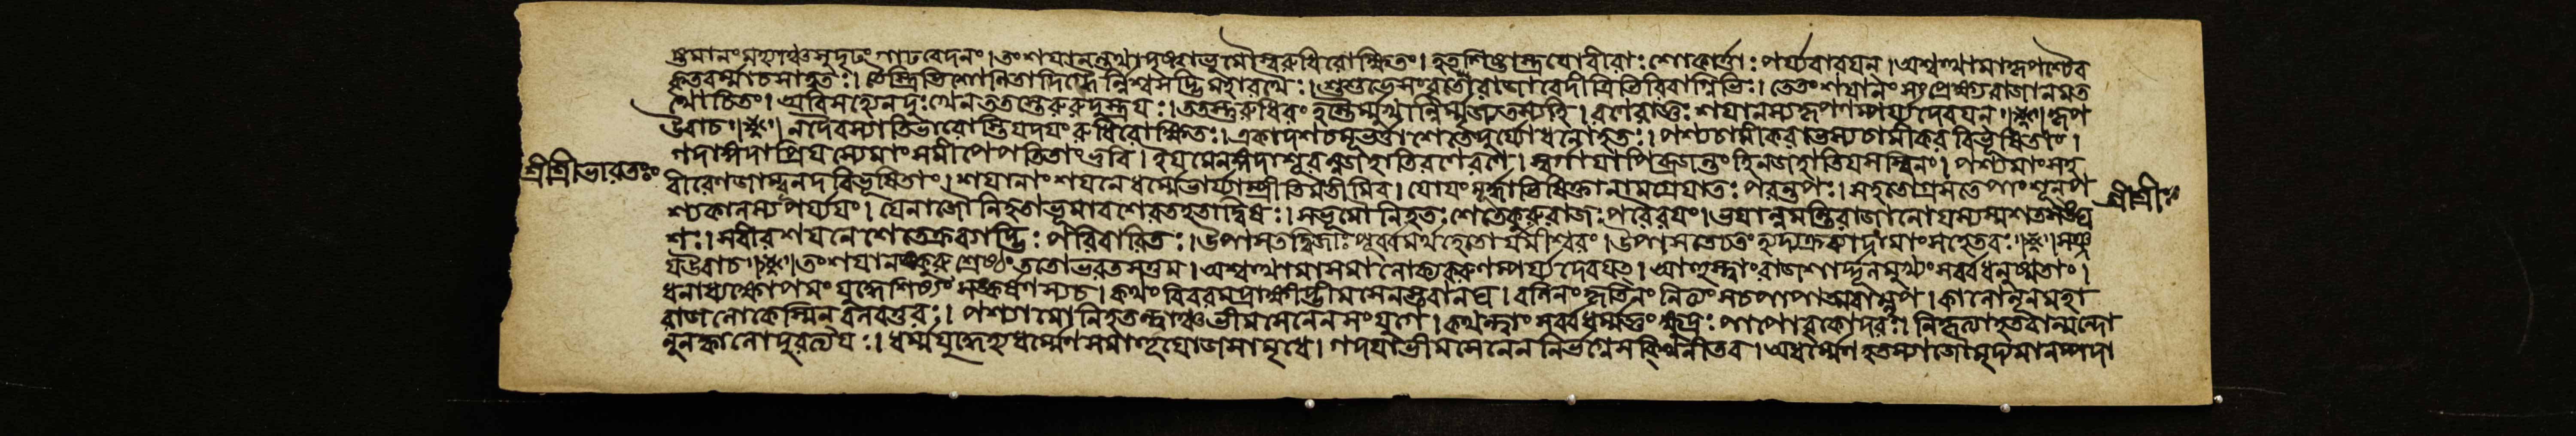 ষ্টমানং মহ্যাঞ্চ সুদৃঢং গাঢবেদনং। তং শযানন্তথা দৃষ্ট্বা ভূমৌ স্বরুধিরোক্ষিতং। হতশিষ্টাস্ত্রযো বীরাঃ শোকার্ত্তাঃ পর্য্যবারযন্। অশ্বত্থামা কৃপশ্চৈব
কৃতবর্ম্মা চ সাত্বতঃ। তৈস্ত্রিভিঃ শোনিতাদিগ্ধৈর্ন্নিশ্বসদ্ভির্ম্মহারথৈঃ। শুশুভে সংবৃতো রাজা বেদী ত্রিভিরিবাগ্নিভিঃ। তে তং শযানং সংপ্রেক্ষ্য রাজানমত
থোচিতং। অবিসহ্যেন দুঃখেন ততস্তে রুরুদুস্ত্রযঃ। ততস্তু রুধিরং হস্তৈর্ম্মুখান্নির্ম্মৃজ্য তস্য হি। রণে রাজ্ঞঃ শযানস্য কৃপণম্পর্য্যদেবযন্॥ কৃপ
উবাচ॥ ন দৈবস্যাতিভারোস্তি যদযং রুধিরোক্ষিতঃ। একাদশচমূভর্ত্তা শেতে দুর্য্যোধনো হতঃ। পশ্য চামীকরাভস্য চামীকরবিভূষিতাং।
গদাঙ্গদাপ্রিযস্যেমাং সমীপে পতিতাং ভুবি। ইযমেনঙ্গদা শূরন্নজহাতি রণে রণে। স্বর্গাযাপি ব্রজন্তং হি ন জহাতি যসস্বিনং। পশ্যেমাং সহ
বীরেণ জাম্বূনদবিভূষিতাং। শযানাং শযনে ধর্ম্মে ভার্য্যাম্প্রীতিমতীমিব। যোযং মূর্দ্ধাভিষিক্তানামগ্রে যাতঃ পরন্তপঃ। স হতো গ্রসতে পাংশূন্ প
শ্য কালস্য পর্য্যযং। যেনাজৌ নিহতা ভূমাবশেরত হতা দ্বিষঃ। স ভূমৌ নিহতঃ শেতে কুরুরাজঃ পরৈরযং। ভযান্নমন্তি রাজানো যস্য স্ম শতসঙ্ঘ
শঃ। স বীরশযনে শেতে ক্রব্যাদ্ভিঃ পরিবারিতঃ। উপাসত দ্বিজাঃ পূর্ব্বমর্থহেতোর্যমীশ্বরং। উপাসতে চ তং হ্যদ্য ক্রব্যাদা মাংসহেতবঃ॥ সঞ্জ
য উবাচ॥ তং শযানং কুরুশ্রেষ্ঠং ততো ভরতসত্তম। অশ্বত্থামা সমালোক্য করুণম্পর্য্যদেবযত্। আহুস্ত্বাং রাজশার্দ্দূল মুখ্যং সর্ব্বধনুষ্মতাং।
ধনাধ্যক্ষোপমং যুদ্ধে শিষ্যং সঙ্কর্ষণস্য চ। কথং বিবরমদ্রাক্ষীদ্ভীমসেনস্তবানঘ। বলিনং কৃতিনং নিত্যং স চ পাপাত্মবান্নৃপ। কালো নূনং মহা
রাজ লোকেস্মিন্ বলবত্তরঃ। পশ্যামো নিহতন্ত্বাঞ্চ ভীমসেনেন সংযুগে। কথন্ত্বাং সর্ব্বধর্ম্মজ্ঞং ক্ষুদ্রঃ পাপো বৃকোদরঃ। নিকৃত্যা হতবান্মন্দো
নুনং কালো দুরত্যযঃ। ধর্ম্মযুদ্ধে হ্যধর্ম্মেণ সমাহূযৌজসা মৃধে। গদযা ভীমসেনেন নির্ভগ্নে সক্থিনী তব। অধর্ম্মেণ হতস্যাজৌ মৃদ্যমানম্পদা
শ্রীশ্রীভারতঃ
শ্রীশ্রীঃ